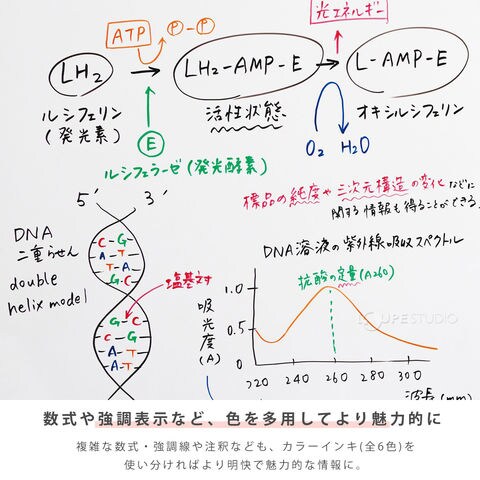 ATP
P-P
光エネルギー
LH2
LH2-AMP-E
L-AMP-E
ルシフェリン
(発光素)
活性状態
オキシルシフェリン
E
O2 H2O
ルシフェラーゼ(発光酵素)
5' 3'
標品の純度や三次元構造の変化などに
関する情報も得ることができる。
DNA
二重らせん
double
helix model
C-G
A-T
T-A
G-C
塩基対
G-C
C-G
A-T
A-T
DNA溶液の紫外線吸収スペクトル
核酸の定量(A260)
吸光度(A)
1.0
0.5
0
220 240 260 280 300
波長(nm)
UPESTUDIO
数式や強調表示など、色を多用してより魅力的に
複雑な数式・強調線や注釈なども、カラーインキ(全6色)を
使い分ければより明快で魅力的な情報に。